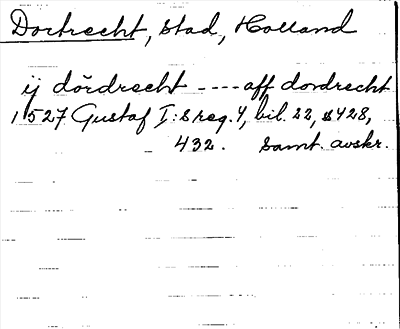 Dortrecht, stad, Holland
ij dördrecht ---- aff dordrecht
1527 Gustaf I:s reg. 4, bil. 22, s 428,
432. Samt. avskr.